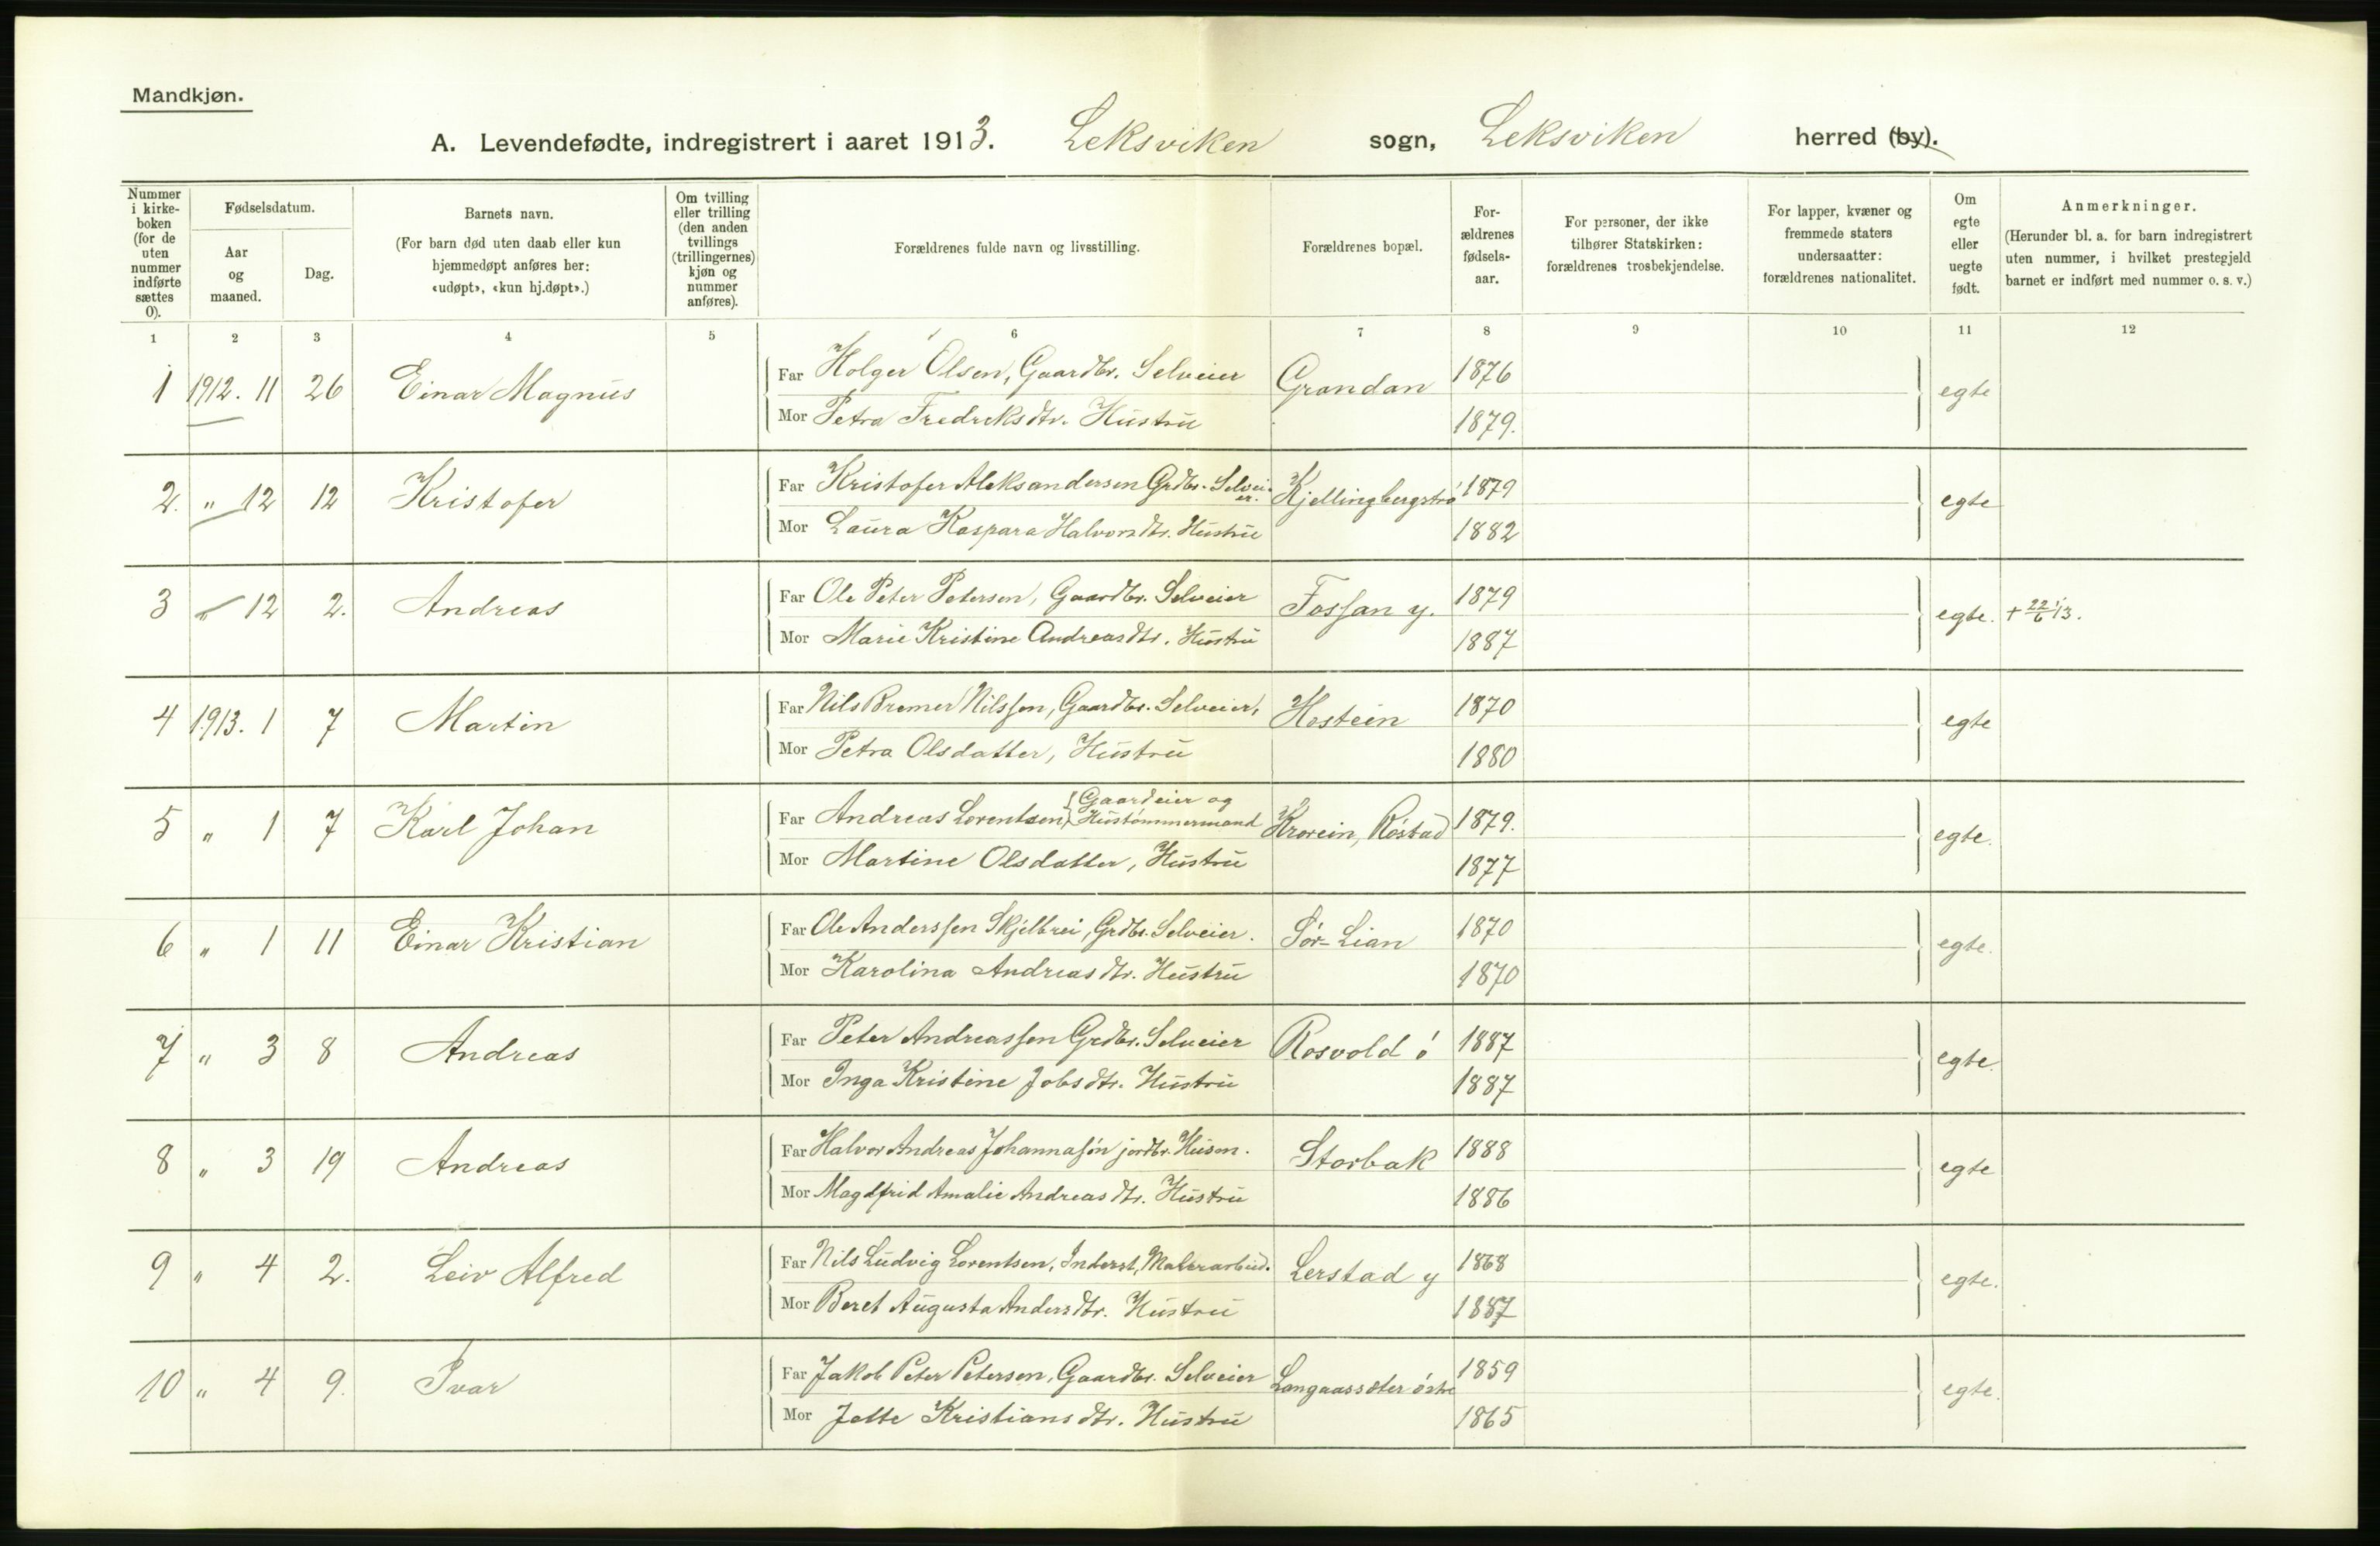 Mandkjøn.
A. Levendefødte, indregistrert i aaret 1913. Leksviken sogn, Leksviken herred (by).
Nummer i kirke-boken (for de uten nummer indførte sættes 0).
Fødselsdatum.
Aar og maaned.
Dag.
Barnets navn.
(For barn død uten daab eller kun hjemmedøpt anføres her: «udøpt», «kun hj.døpt».)
Om tvilling eller trilling (den anden tvillings (trillingernes) kjøn og nummer anføres).
Forældrenes fulde navn og livsstilling.
Forældrenes bopæl.
For-ældrenes fødsels-aar.
For personer, der ikke tilhører Statskirken: forældrenes trosbekjendelse.
For lapper, kvæner og fremmede staters undersaatter: forældrenes nationalitet.
Om egte eller uegte født.
Anmerkninger.
(Herunder bl. a. for barn indregistrert uten nummer, i hvilket prestegjeld barnet er indført med nummer o. s. v.)
1 2 3 4 5 6 7 8 9 10 11 12
1 1912. 11 26 Einar Magnus Far Holger Olsen, Gaardbr. Selveier Grandan 1876 egte
Mor Petra Fredreksdtr. Hustru 1879.
2. " 12 12 Kristofer Far Kristofer Aleksandersen Grdbr. Selveier. Kjellingbergstrø 1879 egte
Mor Laura Kaspara Halvorsdtr. Hustru 1882
3 " 12 2. Andreas Far Ole Peter Petersen, Gaardbr. Selveier Fossan y. 1879 egte. + 22/6 13.
Mor Marie Kristine Andreasdtr. Hustru 1887
4 1913. 1 7 Martin Far Nils Bremer Nilssen, Gaardbr. Selveier, Hostein 1870 egte
Mor Petra Olsdatter, Hustru 1880
5 " 1 7 Karl Johan Far Andreas Lorentsen, Gaardeier og Hustømmermand Krovein, Røstad 1879. egte.
Mor Martine Olsdatter, Hustru 1877
6 " 1 11 Einar Kristian Far Ole Anderssen Skjelbrei, Grdbr. Selveier. Sør-Lian 1870 egte.
Mor Karolina Andreasdtr. Hustru 1870
7 " 3 8 Andreas Far Peter Andreassen Grdbr. Selveier Rosvold ø 1887 egte.
Mor Inga Kristine Jobsdtr. Hustru 1887
8 " 3 19 Andreas Far Halvor Andreas Johannasøn jordbr. Husm. Storbak 1888 egte
Mor Magdfrid Amalie Andreasdtr. Hustru 1886
9 " 4 2. Leiv Alfred Far Nils Ludvig Lorentsen, Inderst, Malerarbeid. Lerstad y 1868 egte.
Mor Beret Augusta Andersdtr. Hustru 1887
10 " 4 9. Ivar Far Jakob Peter Petersen, Gaardbr. Selveier Langaassæter østre 1859 egte.
Mor Jette Kristiansdtr. Hustru 1865